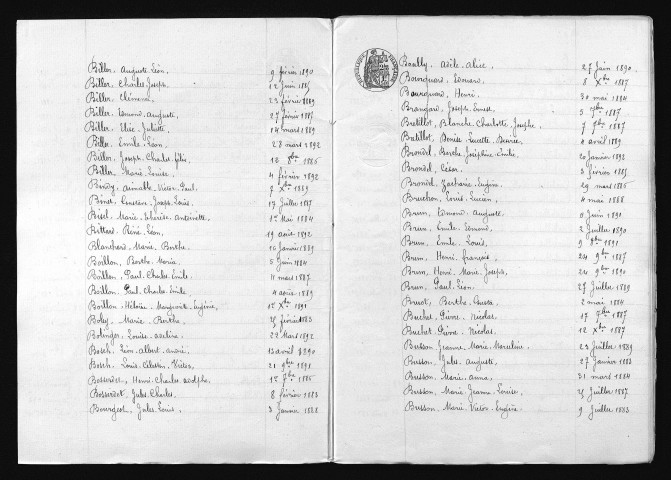 Biller. Auguste. Léon. 9 février 1890
Biller. Charles. Joseph. 12 Juin 1885
Biller. Clémence. 23 février 1889
Biller. Edmond. Auguste. 27 février 1887
Biller. Elise. Juliette 14 mars 1889
Biller. Emile. Léon. 28 mars 1892
Biller. Joseph. Charles. félix. 12 8bre 1886
Biller. Marie. Louise. 4 février 1892
Aimable. Victor. Paul 7 Xbre 1889
Binet. Joseph. Louis. 17 Juillet 1887
Bisel. Marie. Thérèse. Antoinette. 1er Mai 1884
Bittard. René. Léon. 19 août 1892
Blanchard. Marie. Berthe. 16 Janvier 1889
Boillon. Berthe. Marie. 5 Juin 1884
Boillon. Paul. Charles. Emile. 11 mars 1887
Boillon. Paul. Charles. Emile 4 1889
Boillon. Héloïse. Marguerite. Eugénie. 1er Xbre 1891
Boley. Marie. Berthe. 25 février 1883
Bolinger. Louise. Adeline. 22 Mars 1892
Bosch. Léon. Albert. André. 13 avril 1890
Bosch. Louis. Célestin. Victor. 21 9bre 1891
Bosserdet. Henri. Charles. Adolphe. 1er 7bre 1885
Bosserdet. Jules. Charles. 8 février 1883
Bourgeot. Jules. Louis. 3 Janvier 1888
Boully. Adèle. Alice. 27 Juin 1890.
Bourquard. Edouard. 8 Xbre 1887
Bourquard. Henri. 30 mai 1884
Brangard. Joseph. Ernest. 5 7bre 1887
Bretillot. Blanche. Charlotte. Josèphe. 7 7bre 1887
Batillot. Denise. Lucette. 4 avril 1889
Brondel. Berthe. Joséphine. Emilie. 20 Janvier 1892
Brondel. César. 3 février 1885
Brondel. Zacharie. Eugène. 29 mars 1886
Bruchon. Louis. Lucien. 4 mai 1888
Brun. Edmond. Auguste. 11 Juin 1891
Brun. Emile. Edmond. 2 Juillet 1890
Brun. Emile. Louis. 9 9bre 1891
Brun. Henri. françois. 24 9bre 1887
Brun. Henri. Marie. Joseph. 24 9bre 1890
Brun. Paul. Léon. 27 Juillet 1889
Bruot. Berthe. 2 mai 1884
Buchet. Pierre. Nicolas. 17 7bre 1887
Buchet. Pierre. Nicolas. 12 Xbre 1887
Busson. Jeanne. Marie. Marceline. 23 Juillet 1889
Busson. Jules. Auguste. 27 Janvier 1883
Busson. Marie. Anna. 31 mars 1884
Busson. Marie. Jeanne. Louise. 25 Juillet 1887
Busson. Marie. Victor. Eugène. 9 Juillet 1883